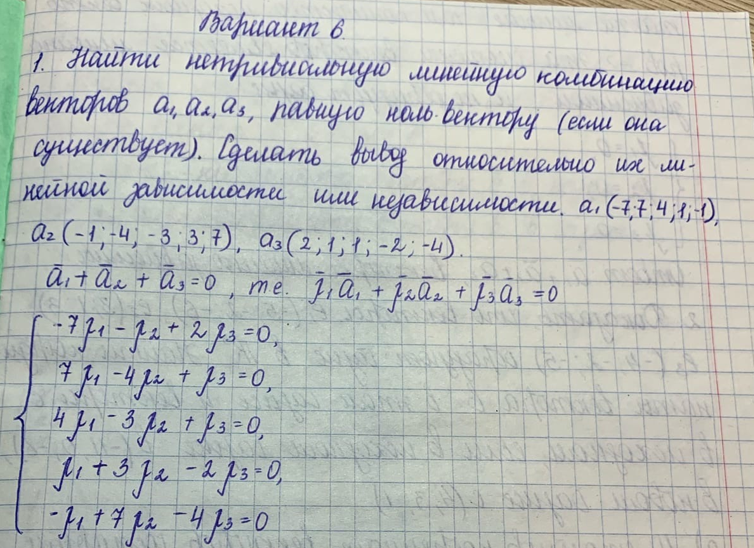 Вариант 6
1. Найти нетривиальную линейную комбинацию
векторов a₁, a₂, a₃, равную ноль-вектору (если она
существует). Сделать вывод относительно их ли-
нейной зависимости или независимости. a₁(-7;7;4;1;-1),
a₂(-1;-4;-3;3;7), a₃(2;1;1;-2;-4).
ā₁ + ā₂ + ā₃ = 0, т.е. p̄₁ā₁ + p̄₂ā₂ + p̄₃a₃ = 0
-7p₁ - p₂ + 2p₃ = 0,
7p₁ - 4p₂ + p₃ = 0,
4p₁ - 3p₂ + p₃ = 0,
p₁ + 3p₂ - 2p₃ = 0,
-p₁ + 7p₂ - 4p₃ = 0